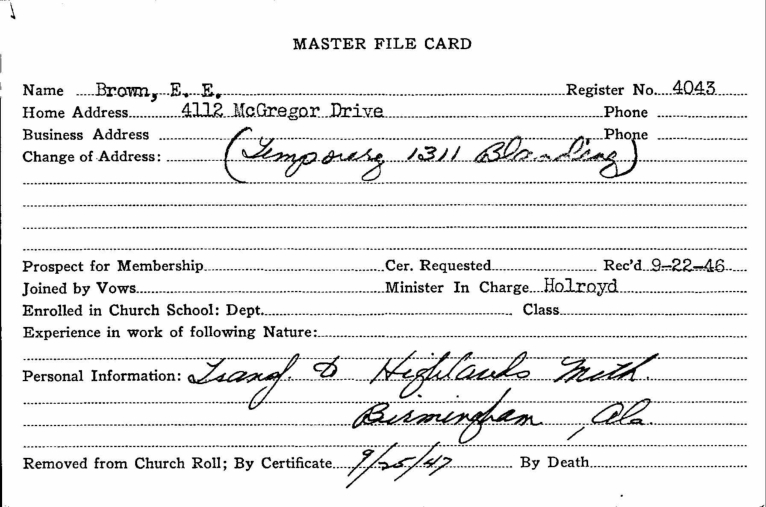 MASTER FILE CARD
Name Brown, E. E. Register No. 4043
Home Address 4112 McGregor Drive Phone
Business Address Phone
Change of Address: (Temporary 1311 Blanding)
Prospect for Membership Cer. Requested Rec'd 9-22-46
Joined by Vows Minister In Charge Holroyd
Enrolled in Church School: Dept. Class
Experience in work of following Nature:
Personal Information: Transf. to Highlands Meth.
Birmingham, Ala.
Removed from Church Roll; By Certificate 9/25/47 By Death